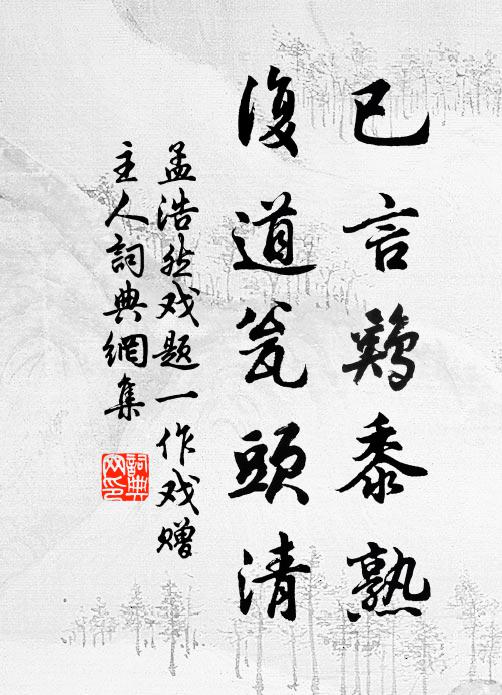 已言鷄黍熟
復道瓮頭清
孟浩然戏题一作戏赠
主人詞典網集
詞典网印